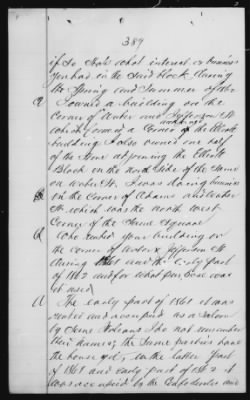 389
if so State what interest or business
you had in the said block during
the Spring and Summer of 1862
A I owned a building on the
Corner of Water and Jefferson St
which formed a Corner of the Elliott
building I also owned one half
of the Store adjoining the Elliott
Block on the north Side of the Same
on Water St. I was doing business
on the Corner of Adams and Water
St. which was the north West
Corner of the Same Square
Q Who rented your building on
the corner of Water & Jefferson St
during 1861 and the early part
of 1862 and for what purpose was
it used
A The early part of 1861 it was
rented and occupied as a Saloon
by Some Italians I do not remember
their names, the Same parties have
the house yet, in the latter part
of 1861 and early part of 1862 it
was occupied by the Confederates and